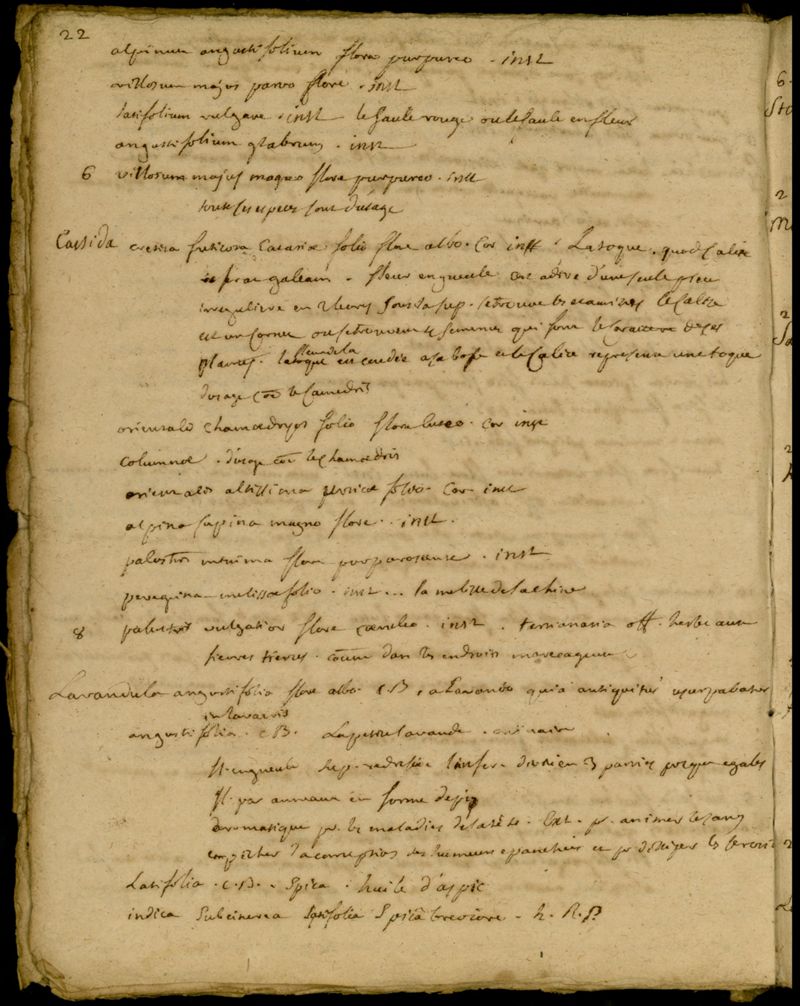 22
alpinum angustifolium flore purpureo . inst
villosum majus parvo flore . inst
latifolium vulgare . inst le saule rouge ou le saule en fleur
angustifolium glabrum . inst
6 villosum majus magno flore purpureo . inst
toutes ces especes sont d'usage
Cassida cretica fruticosa catariae folio flore albo . cor inst . La toque . quod calice
galeam . fleur en gueule est a dire d'une seule piece
irreguliere en 2 levres sous la sup . se trouve les etamines le calice
est un cornet ou se trouvent 4 semences qui font le caractere de ces
plantes . la fleur de la toque est coudée a sa base et le calice represente une toque
d'usage come le camedris
orientalis chamaedryos folio flore luteo . cor inst
columnae . d'usage come le chamaedris
orientalis altissima folio . cor inst
alpina supina magno flore . inst .
palustris minima flore purpurascente . inst
peregrina melissae folio . inst ... la melisse de la chine
8 palustris vulgatior flore caeruleo . inst . tertianaria off . herbe aux
fievres tierces . comune dans les endroits marecageux
Lavandula angustifolia flore albo . C.B. a lavando quia antiquitus usurpabatur
in lavacris
angustifolia . C.B. La petite lavande . ordinaire
fl . en gueule . la sup . redressée l'infer . divisée en 3 parties presque egales
fl . par anneaux en forme d'epy
aromatique pr . les maladies de la tete . ext . pr . animer le sang
empecher la corruption des humeurs epanchées et pr
Latifolia . C.B. . Spica . huile d'aspic
indica subcinerea latifolia spicâ breviore . h . R . P